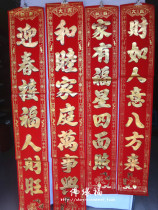 財如人意八方來
家有福星四面照
和睦家庭萬事興
迎春接福人財旺